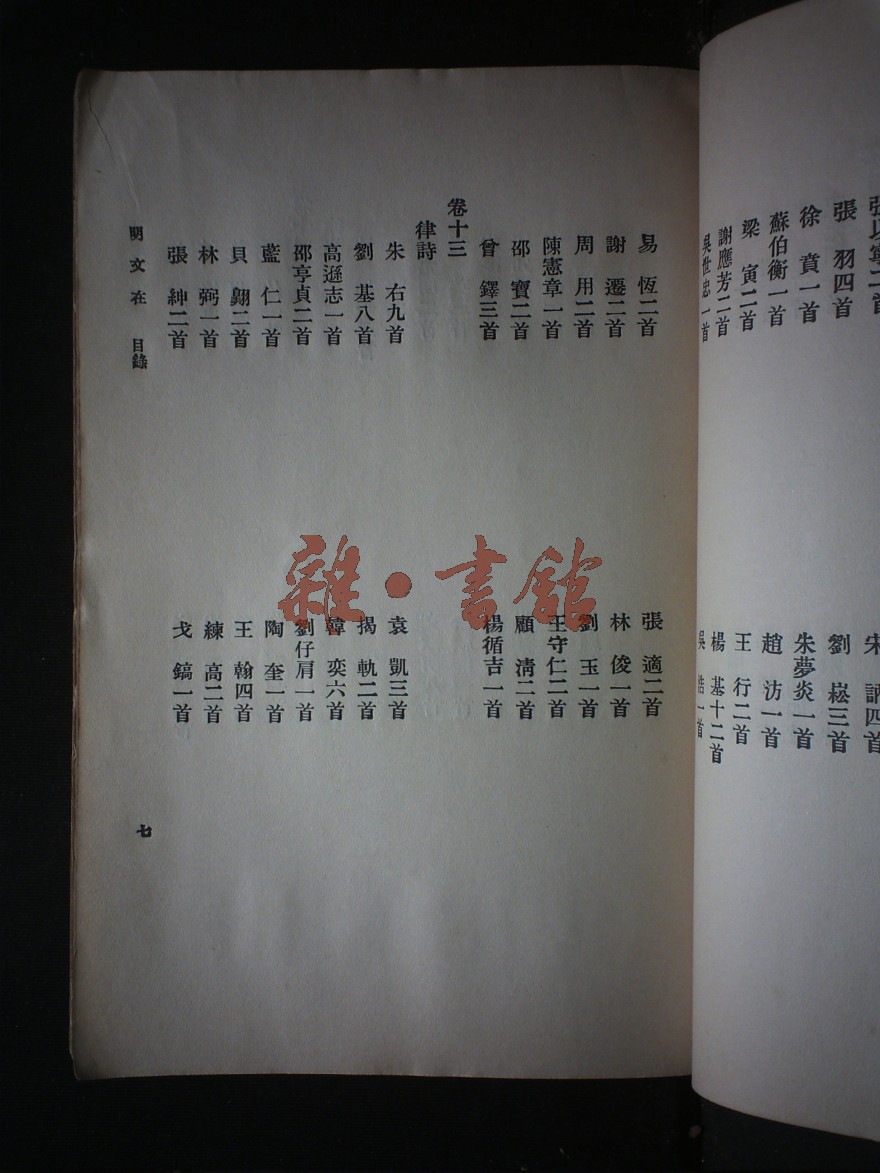 張羽四首
徐賁一首
蘇伯衡一首
梁寅二首
謝應芳二首
吳世忠一首
劉崧三首
朱夢炎一首
趙汸一首
王行二首
楊基十二首
易恆二首
張適二首
謝遷二首
林俊一首
周用二首
劉玉一首
陳憲章一首
王守仁二首
邵寶二首
顧清二首
曾鐸三首
楊循吉一首
卷十三
律詩
朱右九首
袁凱三首
劉基八首
揭軌二首
高遜志一首
韓奕六首
邵亨貞二首
劉仔肩一首
藍仁一首
陶奎一首
貝翱二首
王翰四首
林弼一首
練高二首
張紳二首
戈鎬一首
明文在 目錄
七
雜·書館